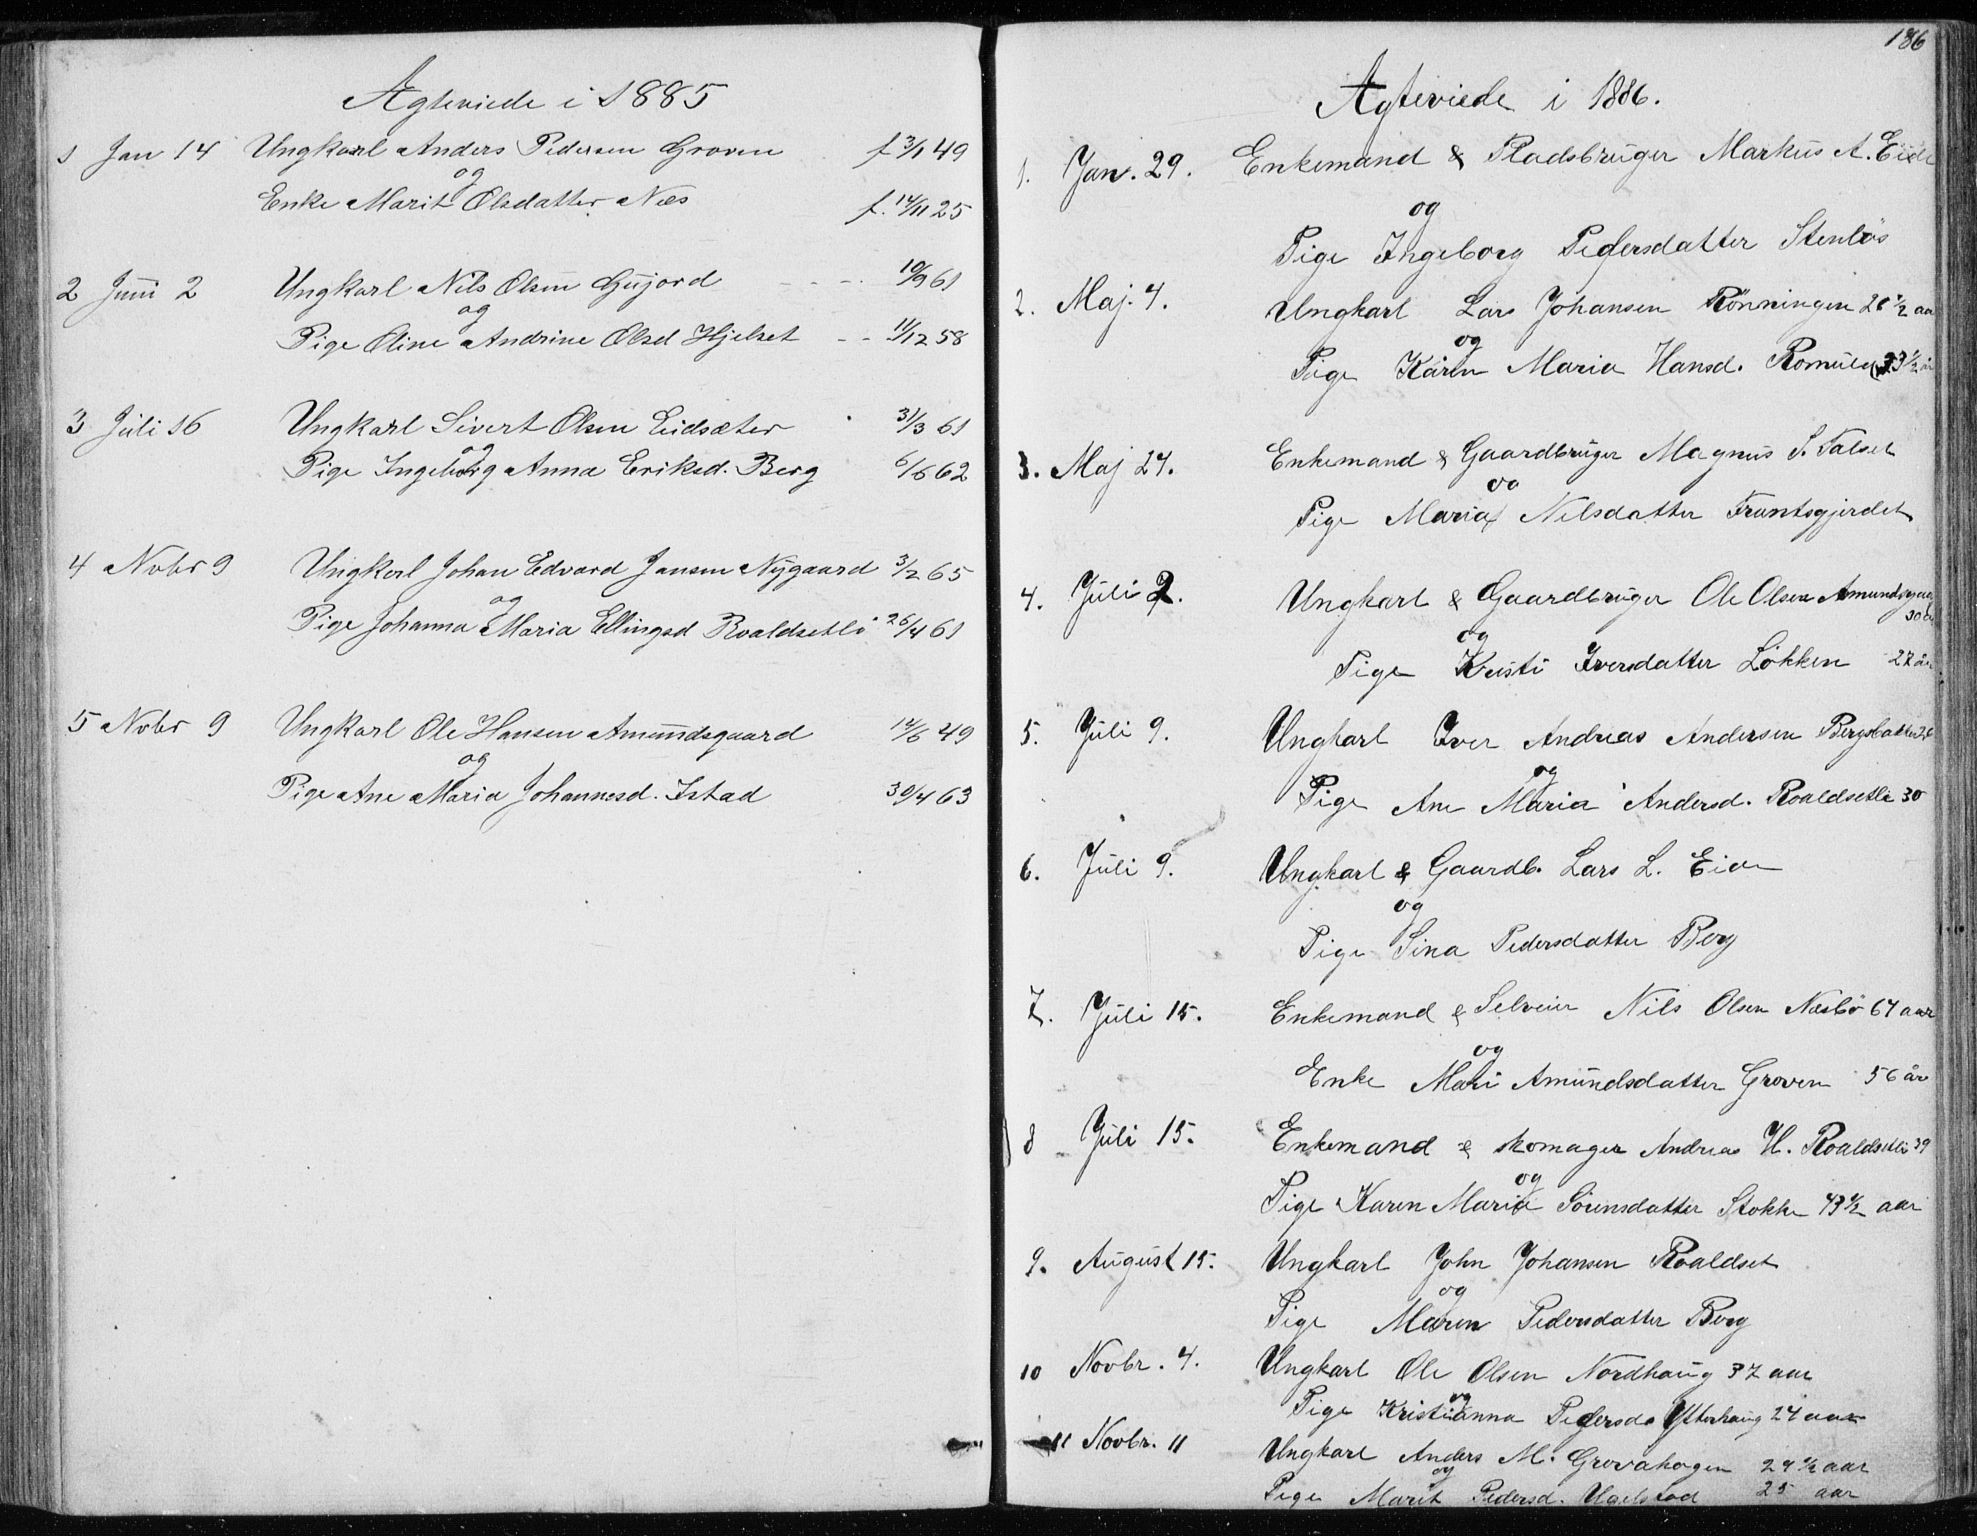 Ægteviede i 1885
1 Jan 14 Ungkarl Anders Pedersen Groven f 3/1 49
og
Enke Marit Olsdatter Næs f. 14/11 25
2 Juni 2 Ungkarl Nils Olsen Gujord 19/9 61
og
Pige Oline Andrine Olsd Hjelset 11/12 58
3 Juli 16 Ungkarl Sivert Olsen Eidsæter 31/3 61
og
Pige Ingeborg Anna Eriksd. Berg 6/6 62
4 Nobr 9 Ungkarl Johan Edvard Jansen Nygaard 3/2 65
og
Pige Johanna Maria Ellingsd Roaldsetli 26/4 61
5 Nobr 9 Ungkarl Ole Hansen Amundsgaard 14/6 49
og
Pige Ane Maria Johannesd. Istad 30/4 63
186
Ægteviede i 1886.
1. Jan. 29. Enkemand & Pladsbruger Markus A. Eide
og
Pige Ingeborg Pedersdatter Stenløs
2. Maj. 4. Ungkarl Lars Johansen Rönningen 26 1/2 aar
og
Pige Karen Maria Hansd. 23 1/2 år
3. Maj 24. Enkemand & Gaardbruger Magnus S. Talset
og
Pige Maria Nilsdatter Frantsgjerdet
4. Juli 2. Ungkarl & Gaardbruger Ole Olsen Amundsgaar
30 år
og
Pige Kristi Iversdatter Løkken 27 år
5. Juli 9. Ungkarl Iver Andreas Andersen Bergsbakken 26
og
Pige Ane Maria Andersd. Roaldsetli 30
6. Juli 9. Ungkarl & Gaardb. Lars L. Eide
og
Pige Sina Pedersdatter Berg
7. Juli 15. Enkemand & Selveier Nils Olsen Næsbø 64 aar
og
Enke Mari Amundsdatter Groven 56 år
8 Juli 15. Enkemand & skomager Andreas H. Roaldsetli 39
og
Pige Karen Maria Sörensdatter Stokke 43 1/2 aar
9. August 15. Ungkarl John Johansen Roaldset
og
Pige Maren Pedersdatter Berg
10 Novbr. 4. Ungkarl Ole Olsen Nordhaug 37 aar
og
Pige Kristianna Pedersd. Ytterhaug 24 aar
11 Novbr. 11 Ungkarl Anders M. Grovahagen 24 1/2 aar
og
Pige Marit Pedersd. Ugelstad 25 aar